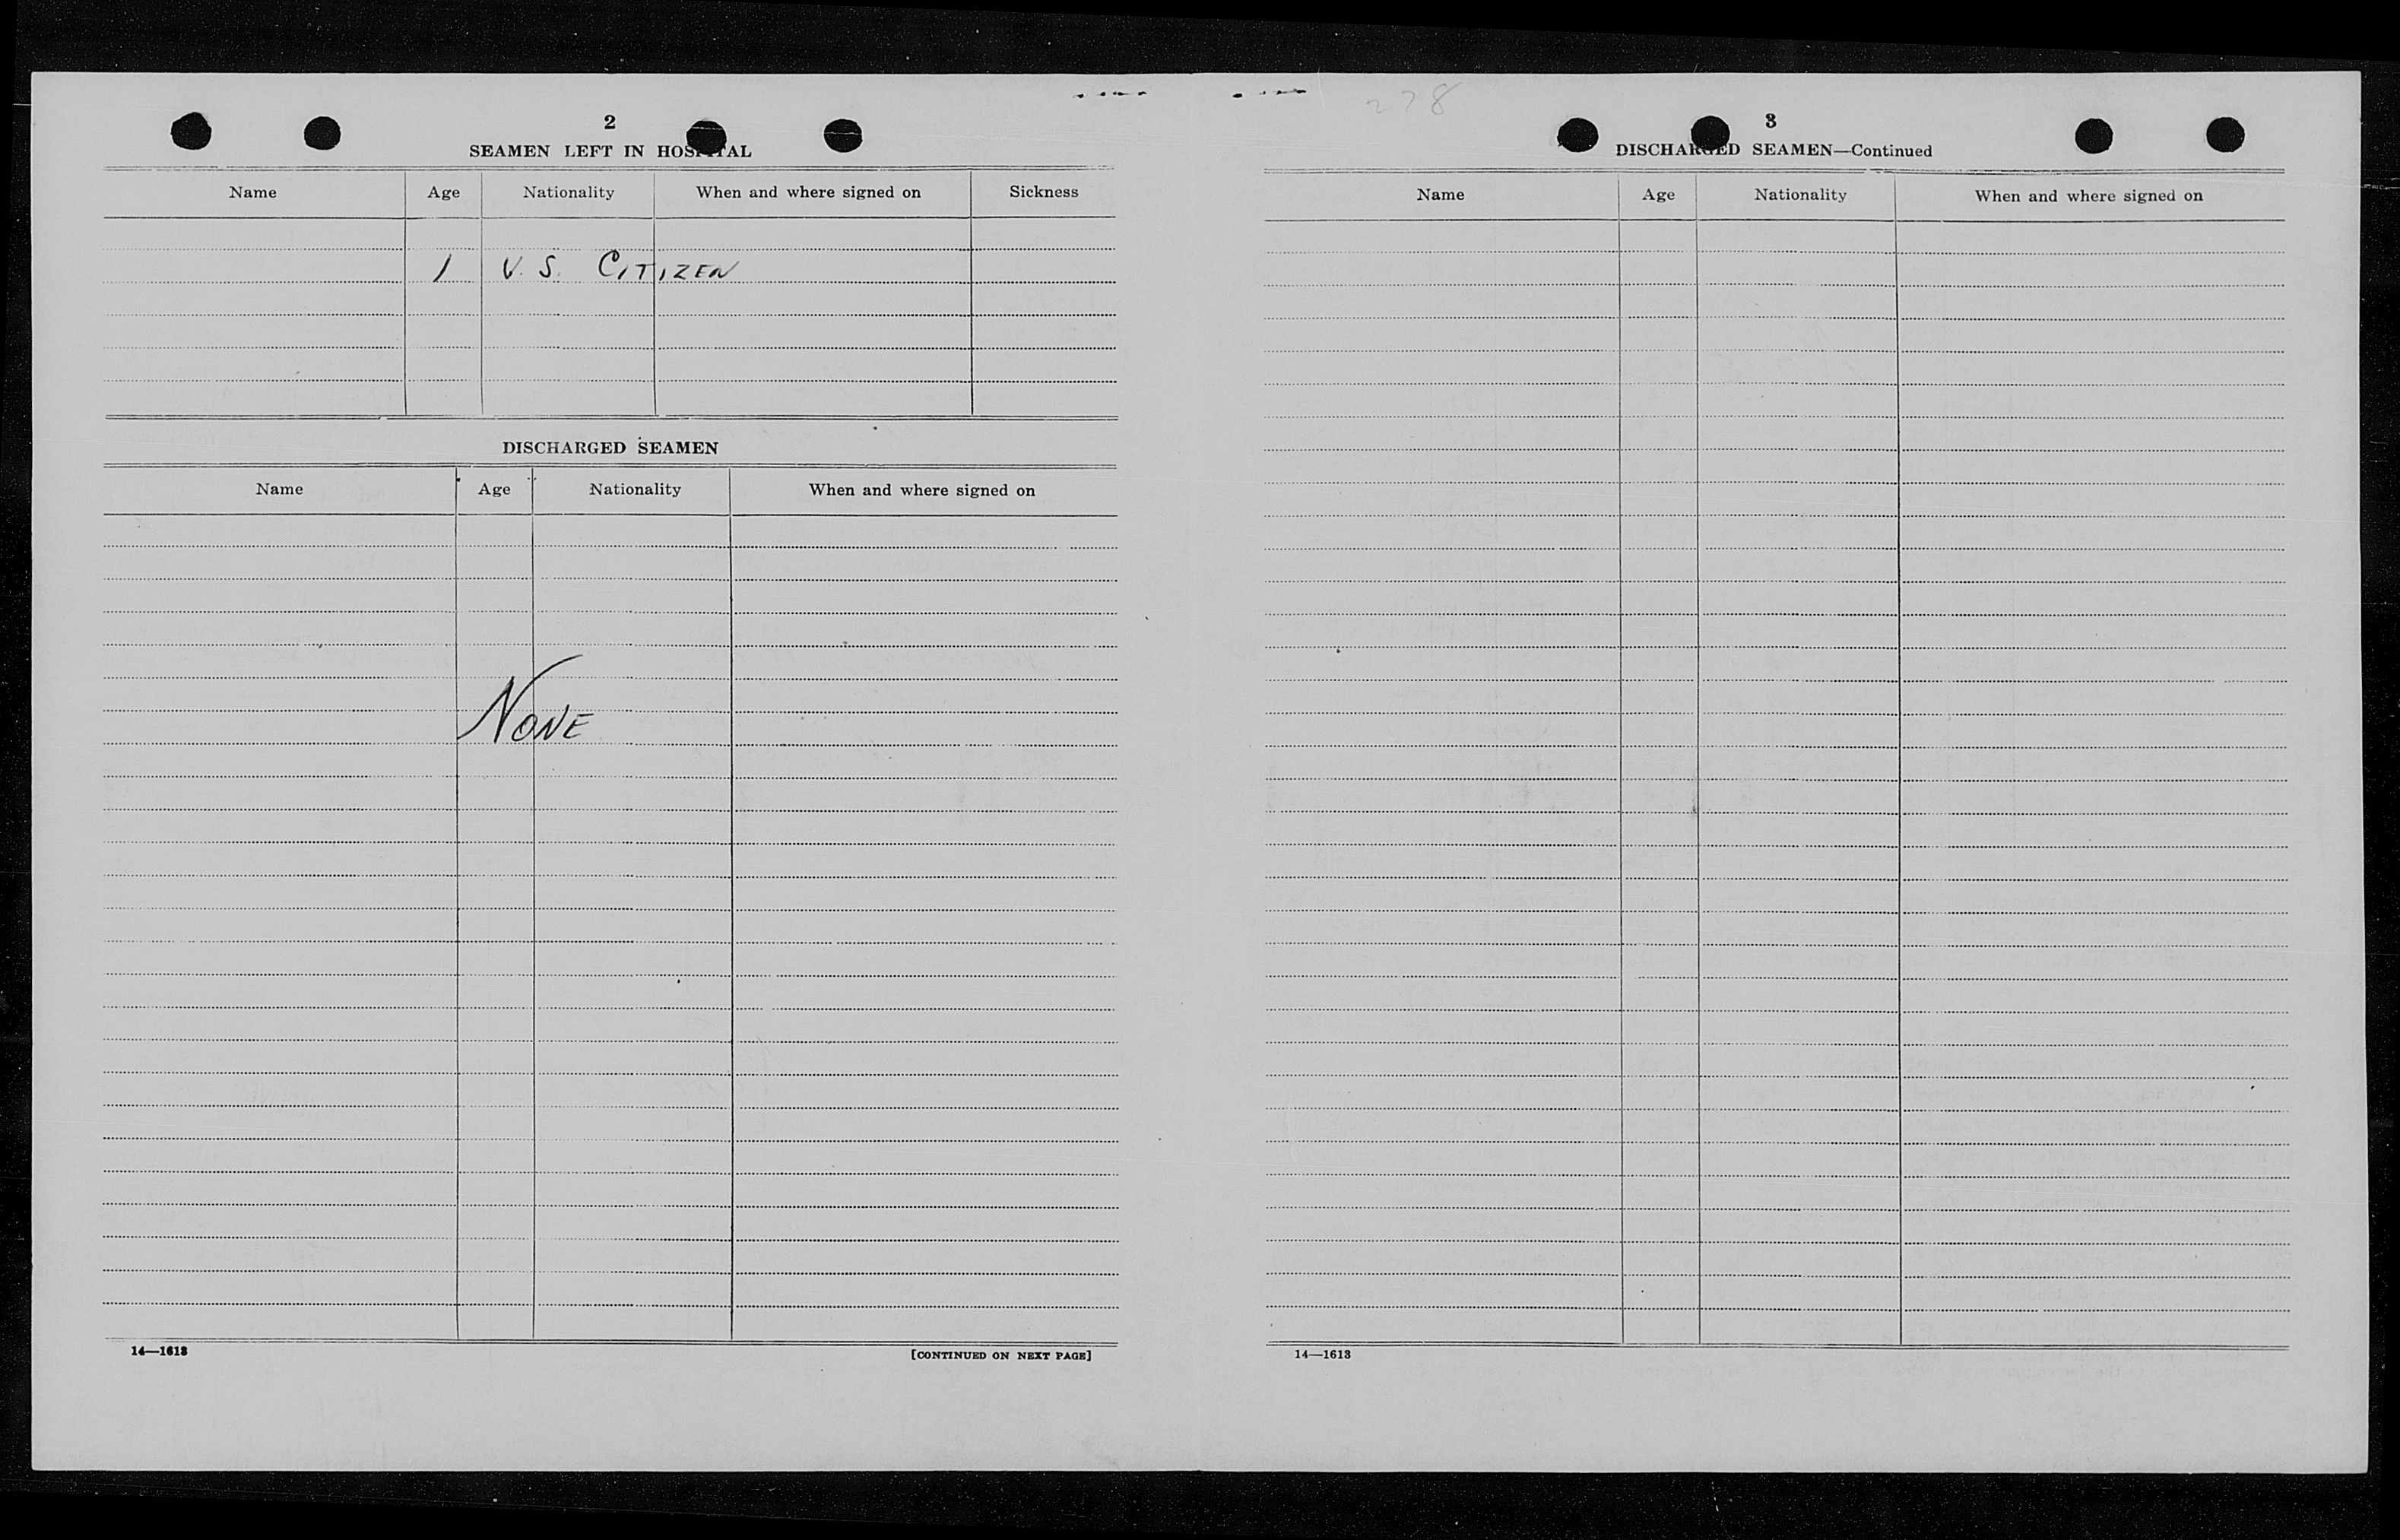 2
SEAMEN LEFT IN HOSPITAL
Name Age Nationality When and where signed on Sickness
1 U. S. CITIZEN
DISCHARGED SEAMEN
Name Age Nationality When and where signed on
NONE
14—1613 [CONTINUED ON NEXT PAGE]
278
3
DISCHARGED SEAMEN—Continued
Name Age Nationality When and where signed on
14—1613